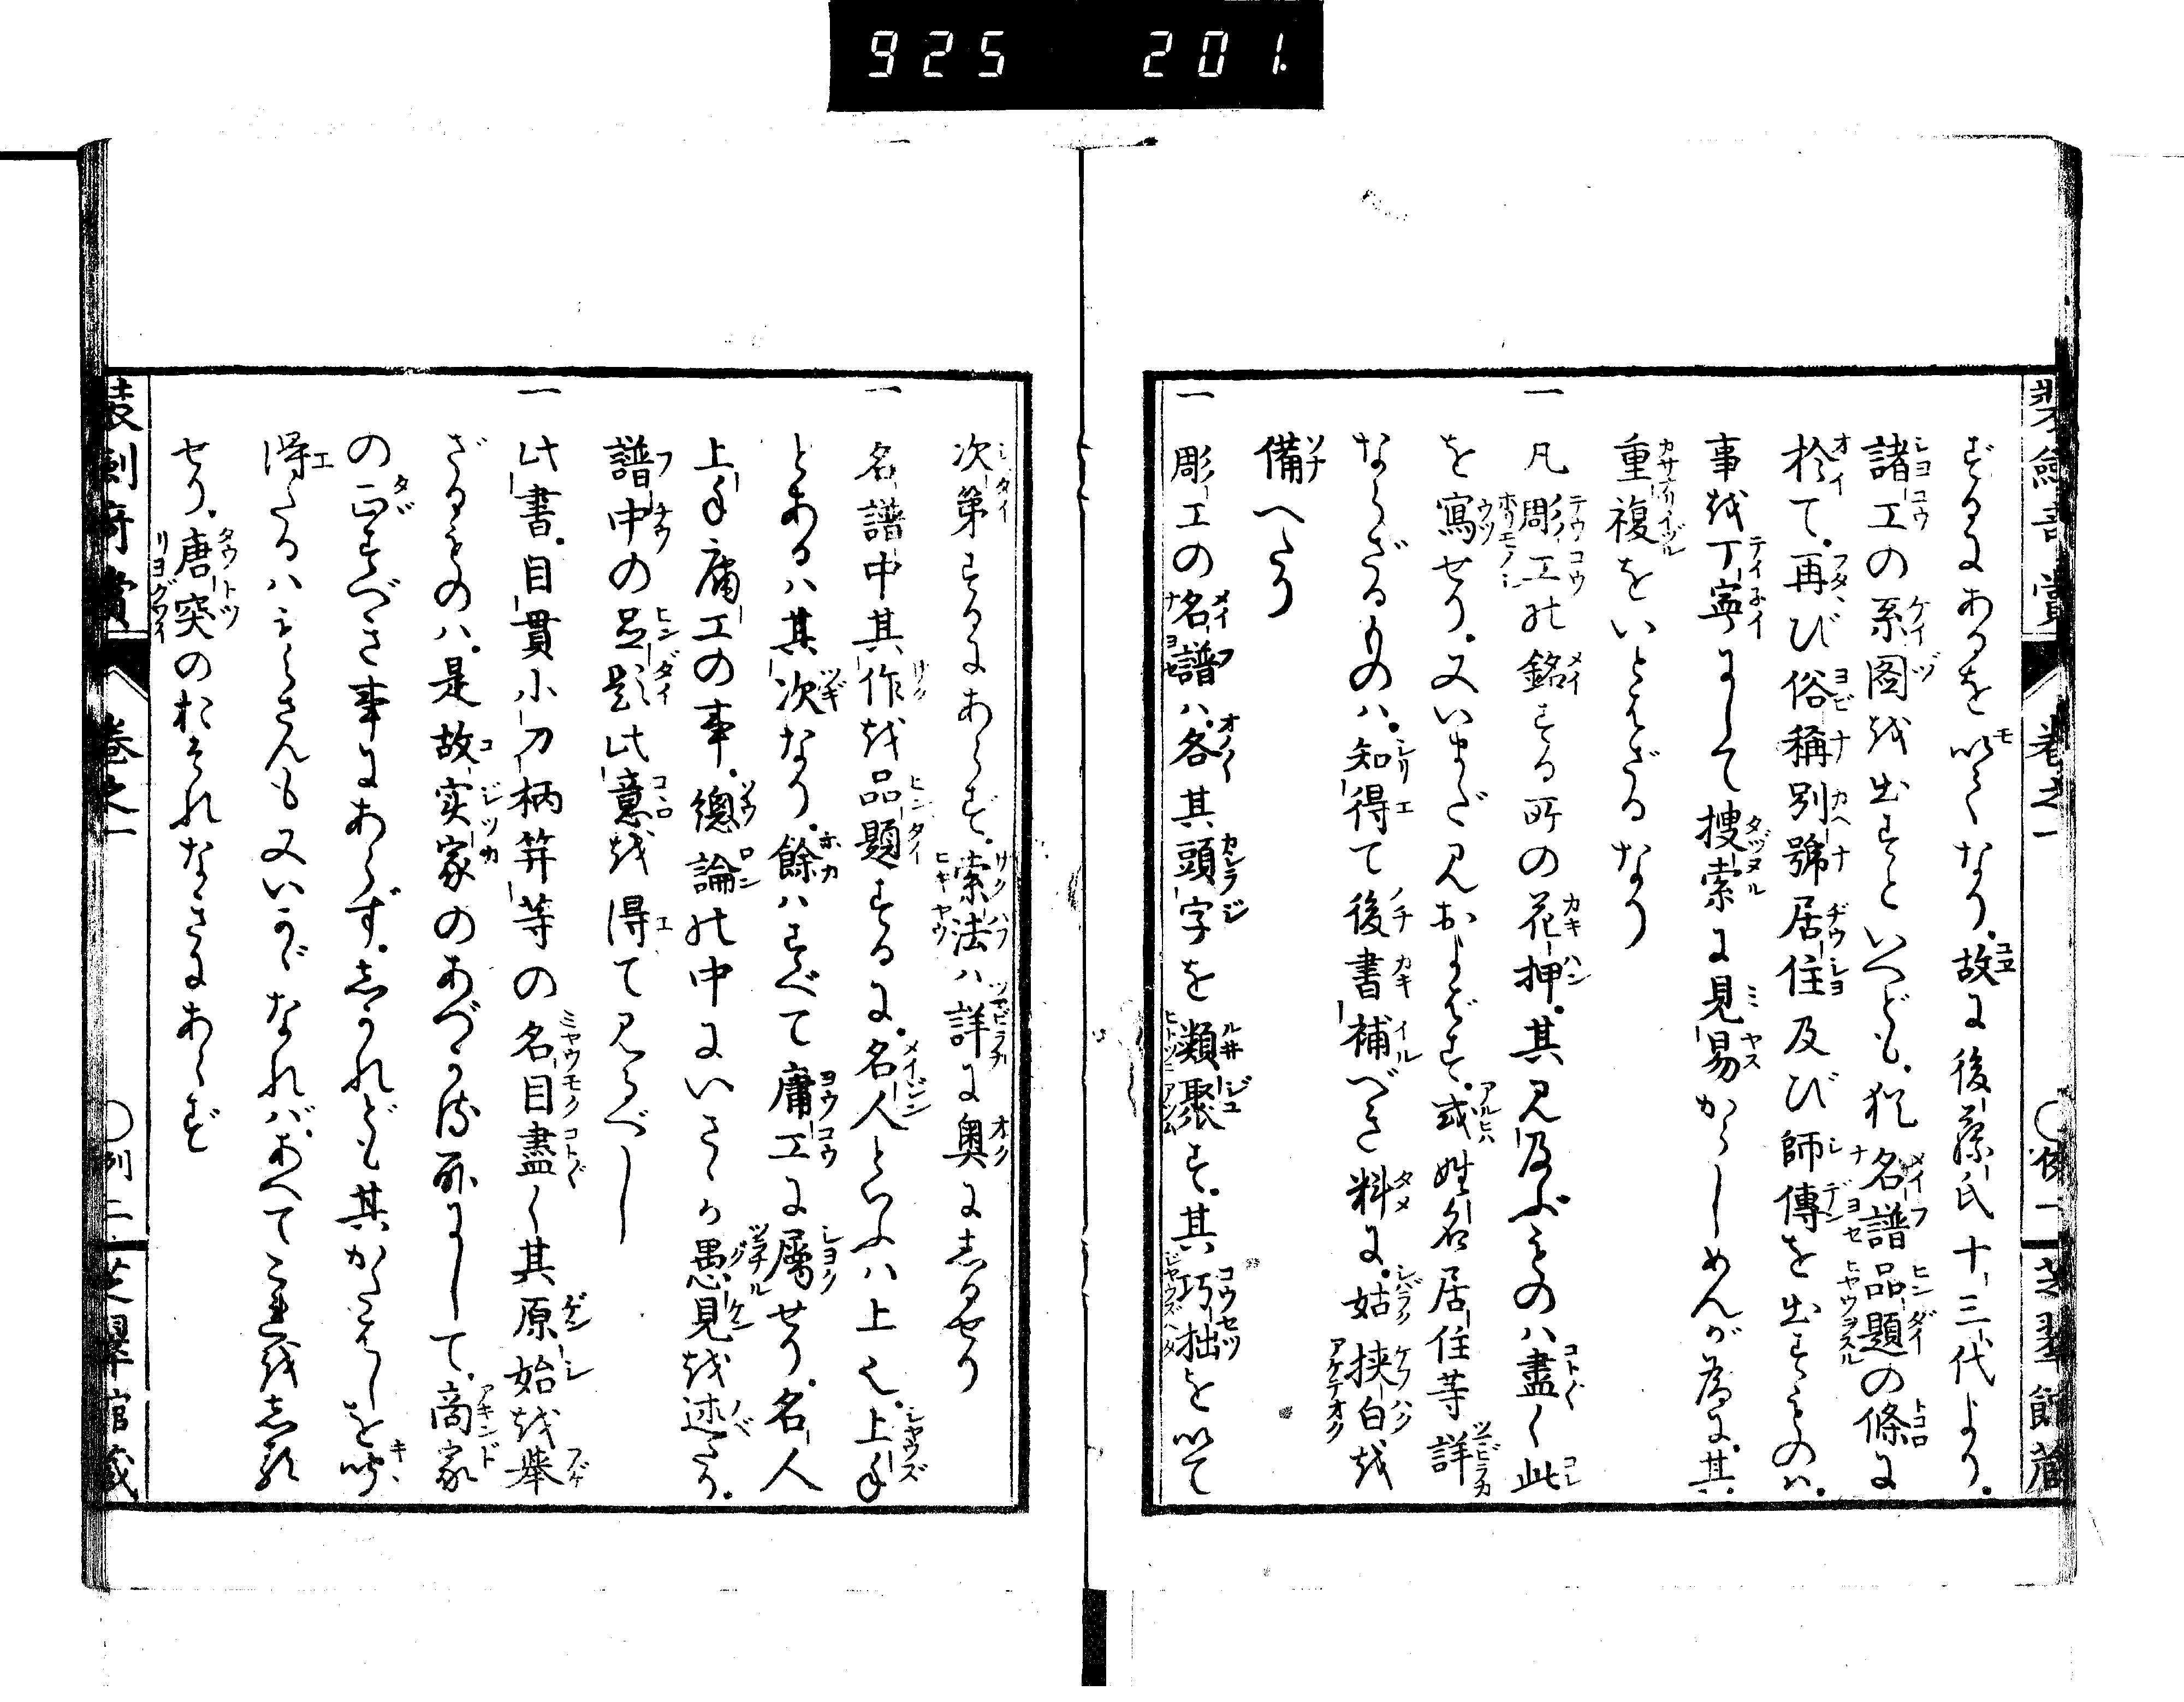 925 201.
ざるにあるを以てなり。故に後藤氏十三代より。
諸工の系図を出すといへども。猶名譜品題の條に
於て。再び俗稱別號居住及び師傳を出すものハ。
事を丁寧にして捜索に見易からしめんが為に。其
重複をいとはざるなり
一 凡彫工の銘する所の花押。其見及ぶものハ盡く此
を寫せり。又いまだ見およばず。或姓名居住等詳
ならざるものハ。知得て後書補べき料に。姑挟白を
備へたり
一 彫工の名譜ハ。各其頭字を類聚す。其巧拙を以て
次第するにあらず。索法ハ詳に奥にしるせり
一 名譜中其作を品題するに。名人といふハ上也。上手
とあるハ其次なり。餘ハすべて庸工に属せり。名人
上手庸工の事。總論の中にいさゝか愚見を述たり。
譜中の品題此意を得て見るべし
一 此書。目貫小刀柄笄等の名目盡く其原始を挙
ざるものハ。是故実家のあづかる所にして。商家
の正すべき事にあらず。しかれども其かたはしを聞
得たるハもらさんも又いかゞなれバ。あへてこれをしる
せり。唐突のおそれなきにあらず
裝劍奇賞
卷之一
〇例一
芝翠館藏
裝劍奇賞
卷之一
〇例二
芝翠館藏